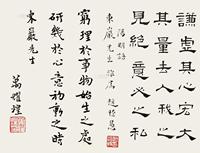 謙虛其心宏大
其量去人我之
見絕意必之私
陽明語
東巖先生雅屬 趙恆惕
窮理於事物始生之處
研幾於心意初動之時
東巖先生
萬耀煌